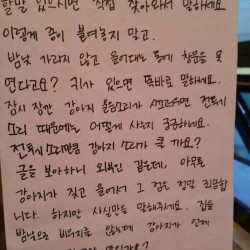 할말 있으시면 직접 찾아와서 말하세요
이렇게 종이 붙여놓지 말고.
밤낮 가리지 않고 울어대는 통에 창문을 못
연다고요? 귀가 있으면 똑바로 말하세요.
잠시 잠깐 강아지 울음소리 시끄러우면 전동기
소리 때문에는 어떻게 사는지 궁금하네요.
전동기 소리만큼 강아지 소리가 큰 가요?
글을 보아하니 외부인 같은데, 아무튼
강아지가 짖고 울어서 그 점은 정말 죄송합
니다. 하지만 사실만을 말해주시죠. 집을
밤낮으로 비우지를 않는데 강아지가 언제